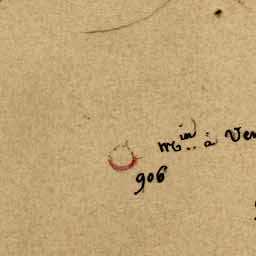 Min à Ven
906